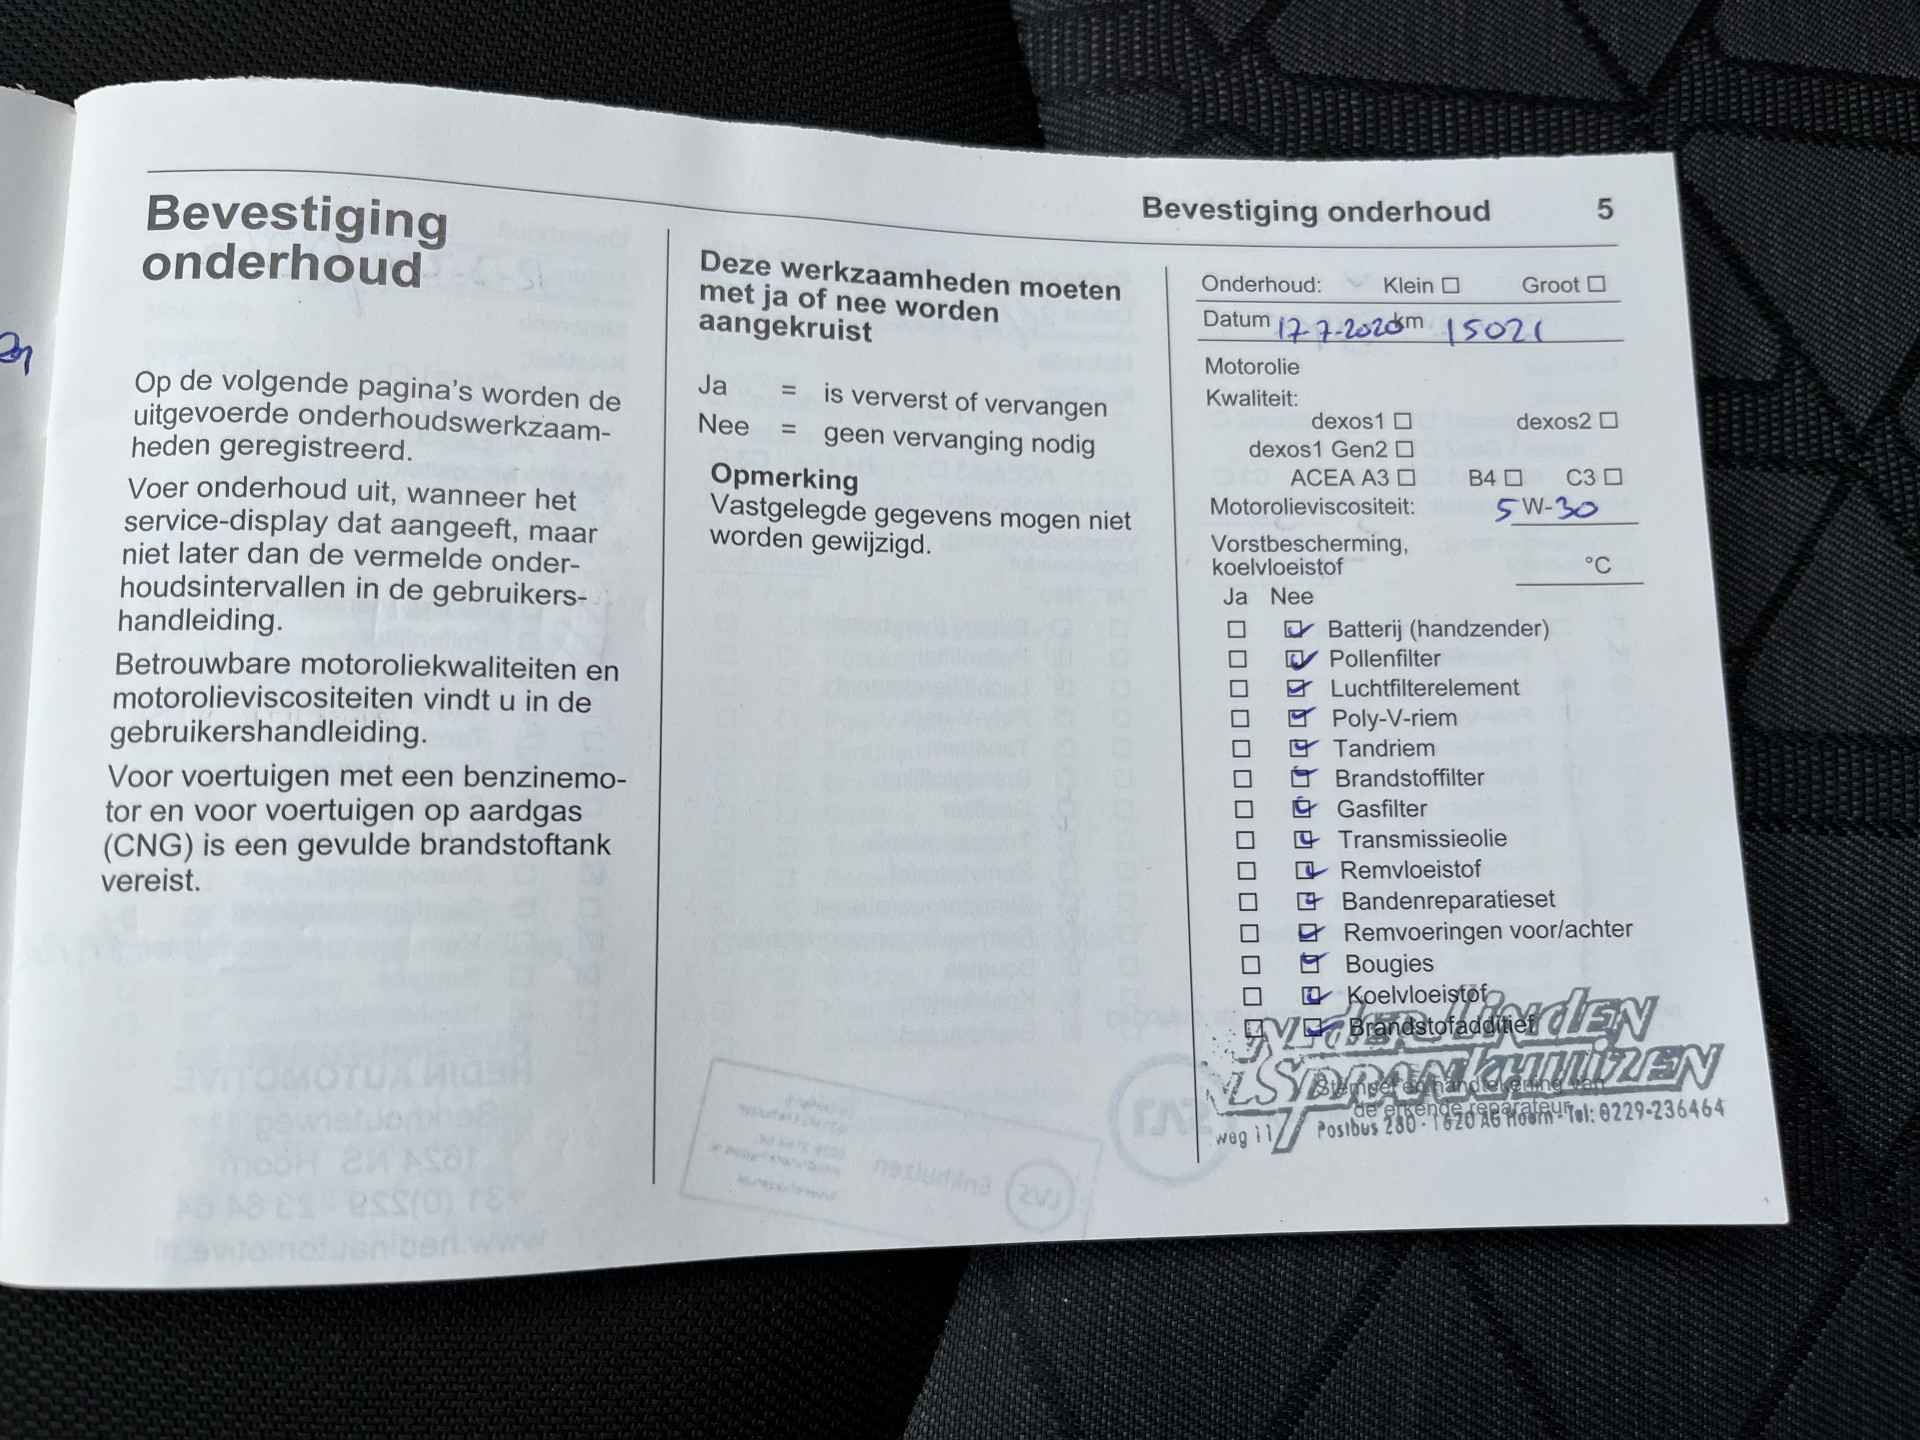 Bevestiging onderhoud 5
Bevestiging
onderhoud
Op de volgende pagina's worden de
uitgevoerde onderhoudswerkzaam-
heden geregistreerd.
Voer onderhoud uit, wanneer het
service-display dat aangeeft, maar
niet later dan de vermelde onder-
houdsintervallen in de gebruikers-
handleiding.
Betrouwbare motoroliekwaliteiten en
motorolieviscositeiten vindt u in de
gebruikershandleiding.
Voor voertuigen met een benzinemo-
tor en voor voertuigen op aardgas
(CNG) is een gevulde brandstoftank
vereist.
Deze werkzaamheden moeten
met ja of nee worden
aangekruist
Ja = is ververst of vervangen
Nee = geen vervanging nodig
Opmerking
Vastgelegde gegevens mogen niet
worden gewijzigd.
Onderhoud: Klein Groot
Datum 17-7-2020 km 15021
Motorolie
Kwaliteit:
dexos1 dexos2
dexos1 Gen2
ACEA A3 B4 C3
Motorolieviscositeit: 5 W-30
Vorstbescherming,
koelvloeistof °C
Ja Nee
Batterij (handzender)
Pollenfilter
Luchtfilterelement
Poly-V-riem
Tandriem
Brandstoffilter
Gasfilter
Transmissieolie
Remvloeistof
Bandenreparatieset
Remvoeringen voor/achter
Bougies
Koelvloeistof
Brandstofadditief
der Linden
Sprankhuizen
Stempel en handtekening van
de erkende reparateur
weg 11 Postbus 280 - 1620 AG Hoorn - Tel: 0229-236464